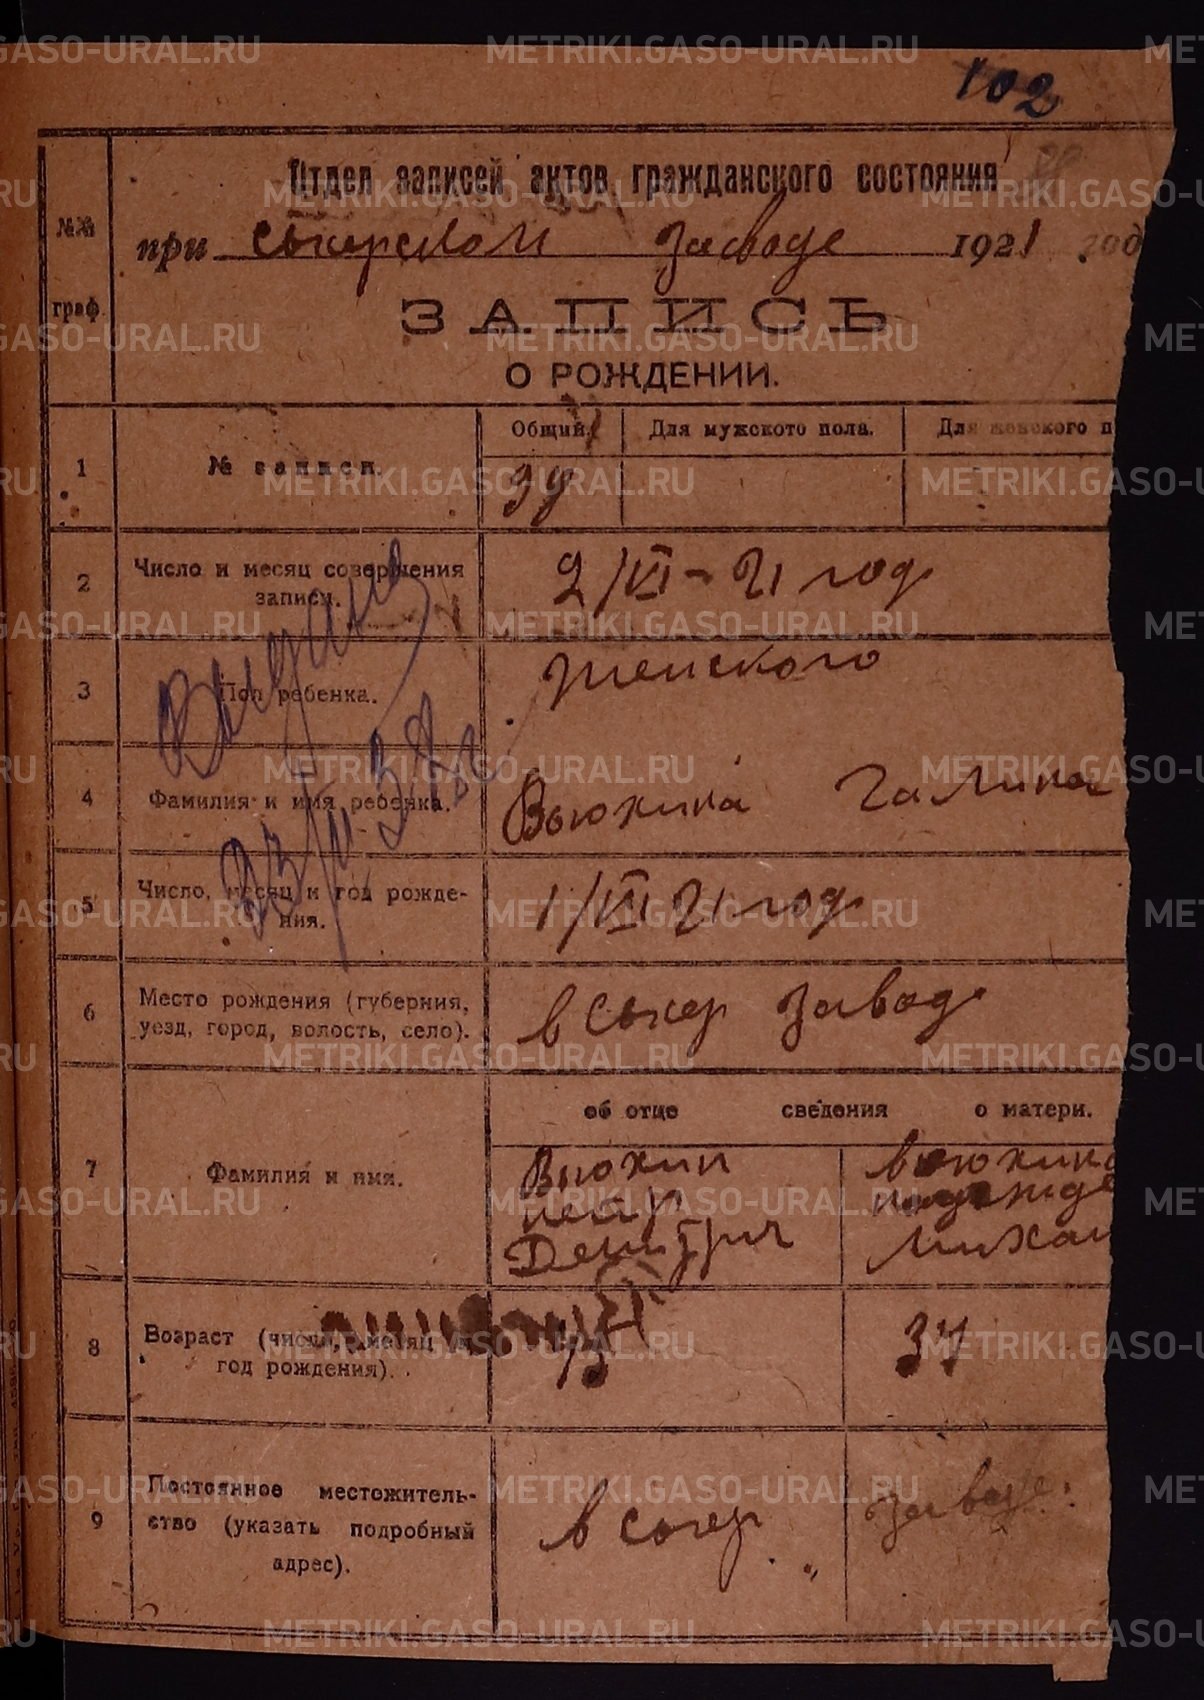 102
Отдел записей актов гражданского состояния
№№ граф.
при Сысерском заводе 1921 год
ЗАПИСЬ
О РОЖДЕНИИ.
1 № записи. Общий. Для мужского пола. Для женского п
2 Число и месяц совершения записи. 2/VI-21 год
3 Пол ребенка. женского
4 Фамилия и имя ребенка. Вьюхина Галина
5 Число, месяц и год рожде-
ния. 1/VI 21 год
6 Место рождения (губерния,
уезд, город, волость, село). в Сысер завод
об отце сведения о матери.
7 Фамилия и имя. Вьюхин Вьюхина
Петр Надежде
Дмитрич Михаи
8 Возраст (число, месяц и
год рождения). 37
9 Постоянное местожитель-
ство (указать подробный
адрес). в Сысер заводе
METRIKI.GASO-URAL.RU